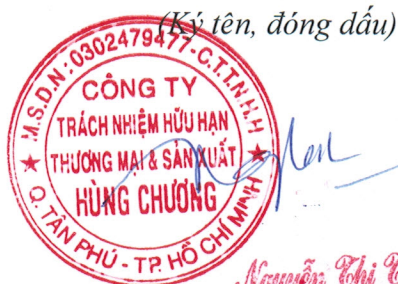 (Ký tên, đóng dấu)
M.S.D.N: 0302479477-C.T.T.N.H.H
CÔNG TY
TRÁCH NHIỆM HỮU HẠN
THƯƠNG MẠI & SẢN XUẤT
HÙNG CHƯƠNG
Q. TÂN PHÚ - TP. HỒ CHÍ MINH
Nguyễn Thị